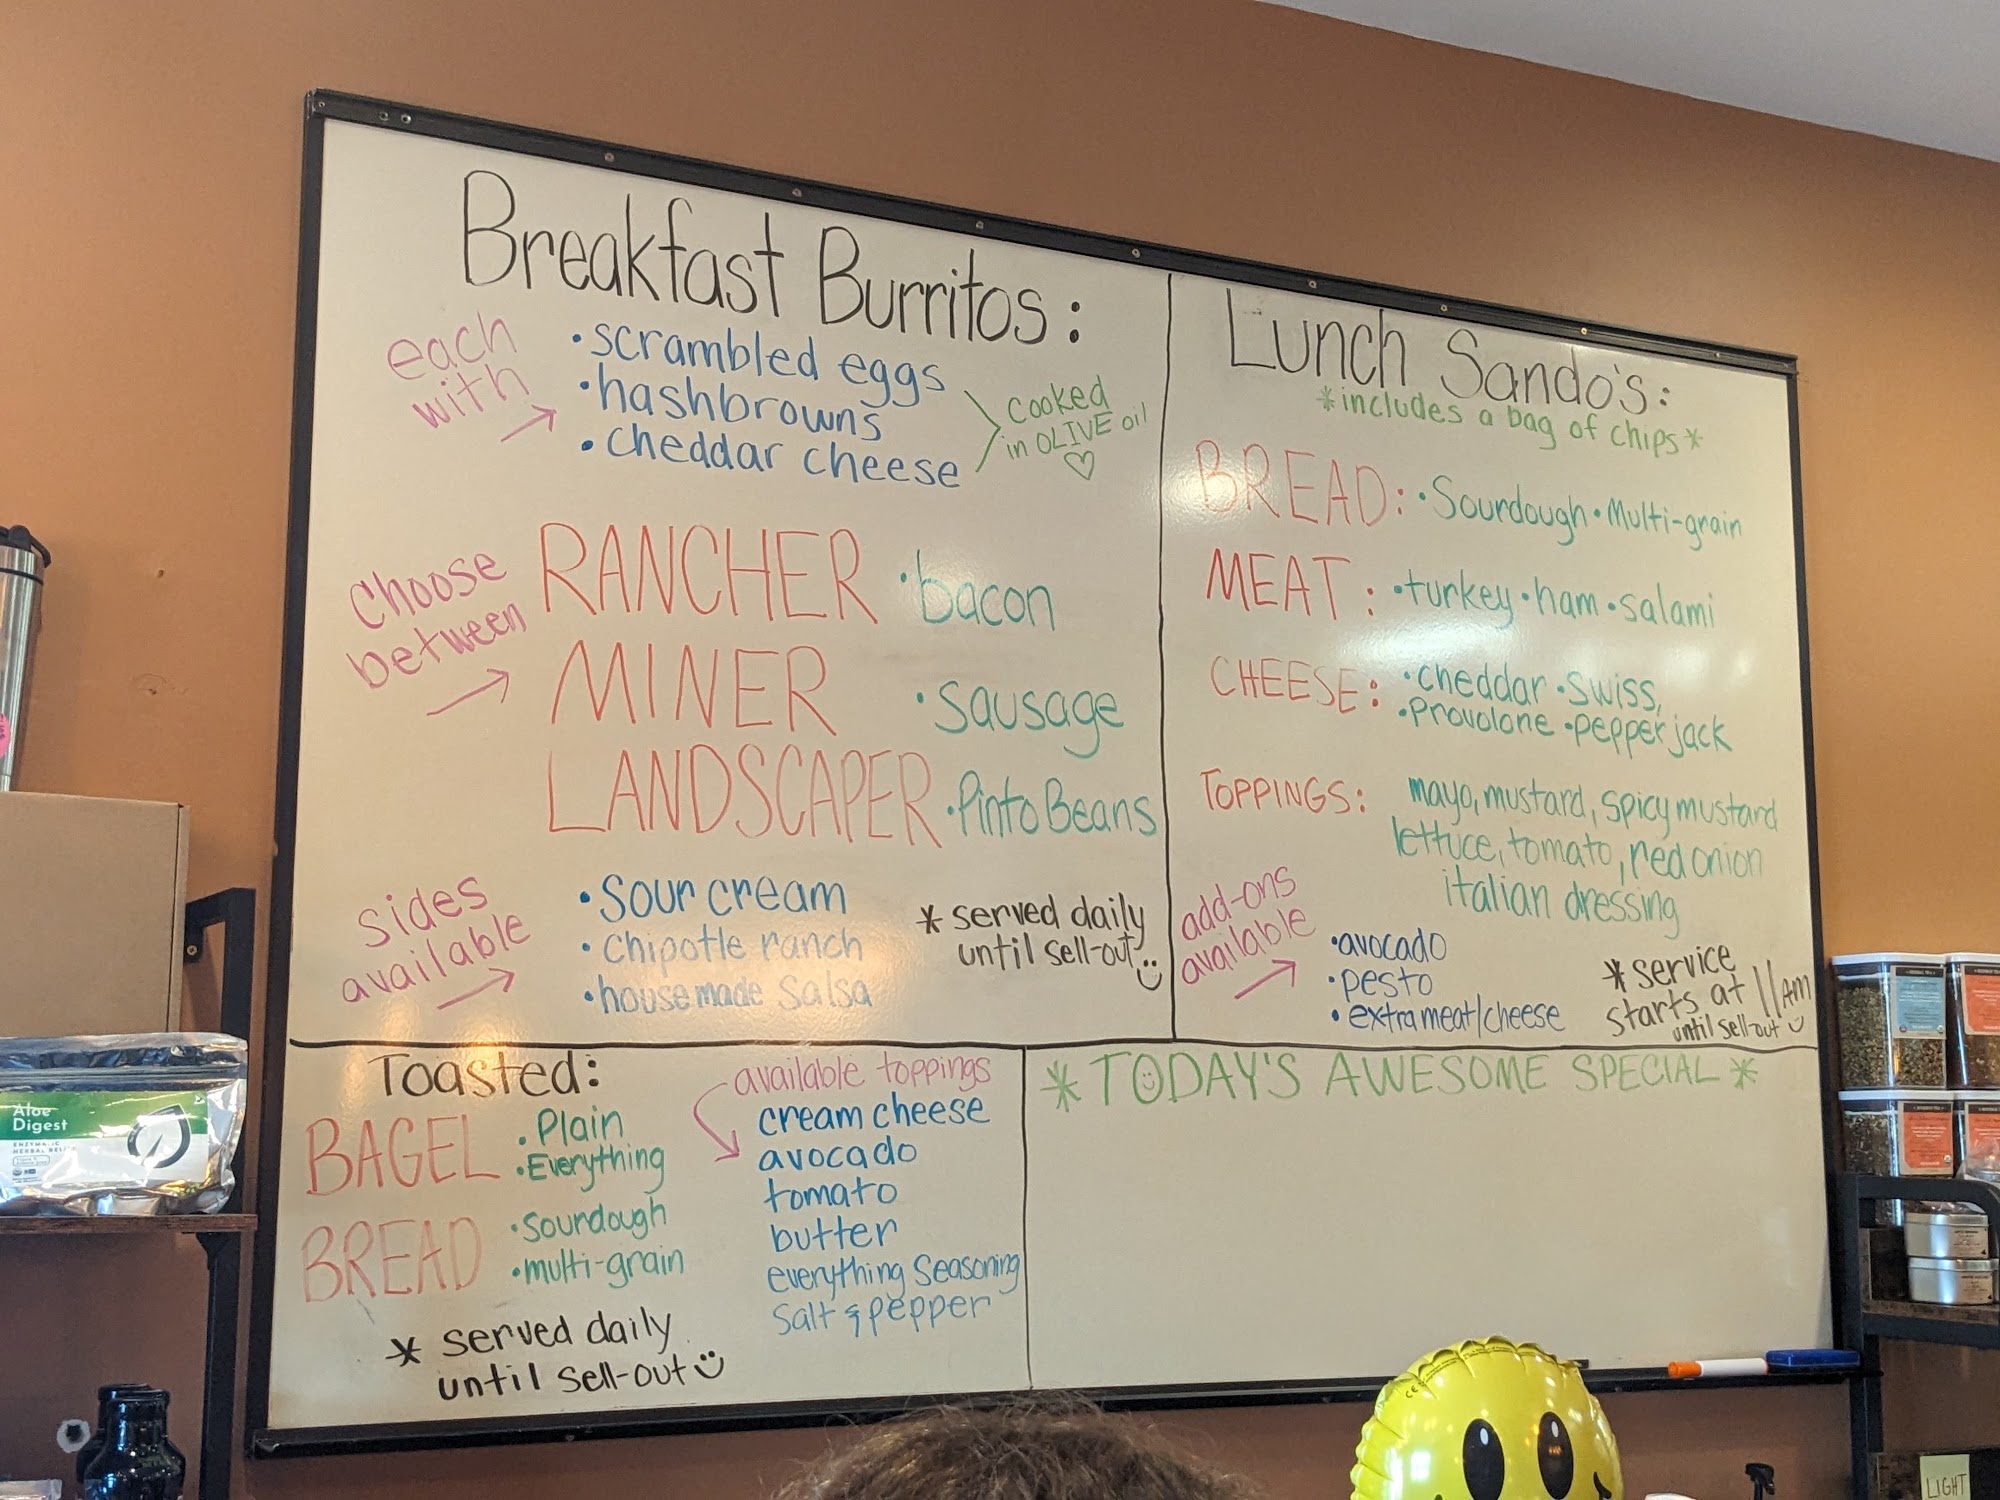 Breakfast Burritos:
each
with
• scrambled eggs
• hashbrowns
• cheddar cheese
cooked
in OLIVE oil
choose
between
RANCHER • bacon
MINER • sausage
LANDSCAPER • Pinto Beans
sides
available
• sour cream
• chipotle ranch
• housemade salsa
* served daily
until sell-out
Lunch Sando's:
*includes a bag of chips*
BREAD: • Sourdough • Multi-grain
MEAT: • turkey • ham • salami
CHEESE: • cheddar • swiss,
• Provolone • pepper jack
TOPPINGS: mayo, mustard, spicy mustard
lettuce, tomato, red onion
italian dressing
add-ons
available
• avocado
• pesto
• extra meat/cheese
* service
starts at 11AM
until sell-out
Toasted:
BAGEL • Plain
• Everything
BREAD • sourdough
• multi-grain
* served daily
until sell-out
available toppings
cream cheese
avocado
tomato
butter
everything seasoning
salt & pepper
* TODAY'S AWESOME SPECIAL *
Aloe
Digest
LIGHT